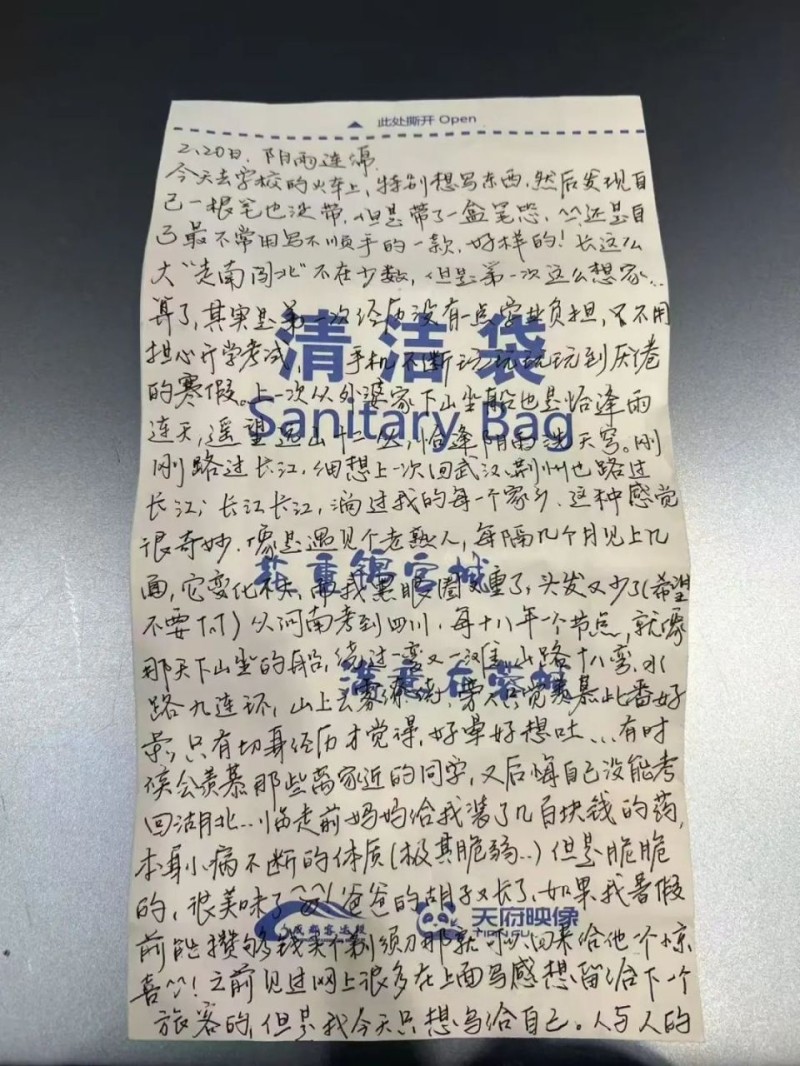 此处撕开 Open
2.20日. 阴雨连绵.
今天去学校的火车上, 特别想写东西, 然后发现自
己一根笔也没带, 但是带了一盒笔芯, ^^还是自
己最不常用写不顺手的一款, 好样的! 长这么
大“走南闯北”不在少数, 但是第一次这么想家...
算了, 其实是第一次经历没有一点学业负担, 不用
担心开学考试, 手机不断玩玩玩玩到厌倦
清洁袋
的寒假。上一次从外婆家下山坐船也是恰逢雨
Sanitary Bag
连天, 遥望远山十二丛, 恰逢阴雨洗天穹。刚
刚路过长江, 细想上一次回武汉、荆州也路过
长江; 长江长江, 淌过我的每一个家乡. 这种感觉
很奇妙. 像是遇见个老熟人, 每隔几个月见上几
花重锦官城
面, 它变化不大, 而我黑眼圈又重了, 头发又少了(希望
不要TAT) 从河南考到四川, 每十八年一个节点, 就像
那天下山坐的船, 绕过一弯又一滩, 山路十八弯, 水
满意在蓉城
路九连环, 山上云雾缭绕, 旁人只觉羡慕此番好
景, 只有切身经历才觉得, 好晕好想吐... 有时
候会羡慕那些离家近的同学, 又后悔自己没能考
回湖北... 临走前妈妈给我装了几百块钱的药,
本身小病不断的体质(极其脆弱..) 但是脆脆
的, 很美味了^^! 爸爸的胡子又长了, 如果我暑假
成都客运段 天府映像
前能攒够钱买个剃须刀那就可以回来给他一个惊
喜^^! 之前见过网上很多在上面写感想留给下一个
旅客的, 但是我今天只想写给自己。人与人的